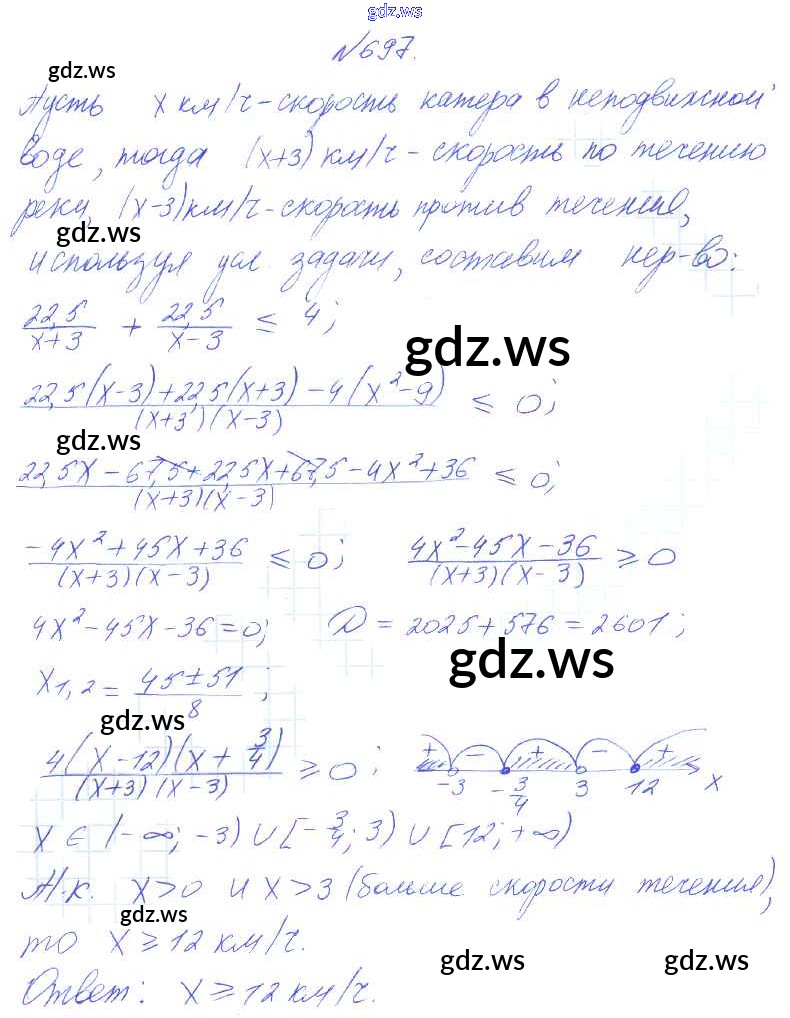 gdz.ws
№697.
gdz.ws
Пусть x км/ч - скорость катера в неподвижной
воде, тогда (x+3) км/ч - скорость по течению
реки, (x-3) км/ч - скорость против течения,
gdz.ws
используя усл. задачи, составим нер-во:
22,5/(x+3) + 22,5/(x-3) ≤ 4;
gdz.ws
(22,5(x-3)+22,5(x+3)-4(x²-9))/((x+3)(x-3)) ≤ 0;
gdz.ws
(22,5x-67,5+22,5x+67,5-4x²+36)/((x+3)(x-3)) ≤ 0;
(-4x²+45x+36)/((x+3)(x-3)) ≤ 0; (4x²-45x-36)/((x+3)(x-3)) ≥ 0
4x²-45x-36=0; D = 2025+576=2601;
gdz.ws
x1,2 = (45±51)/8;
gdz.ws
4(x-12)(x+3/4)/((x+3)(x-3)) ≥ 0; + - + - +
-3 -3/4 3 12 x
x ∈ (-∞; -3) ∪ [-3/4; 3) ∪ [12; +∞)
Т.к. x>0 и x>3 (больше скорости течения),
gdz.ws
то x ≥ 12 км/ч.
gdz.ws gdz.ws
Ответ: x ≥ 12 км/ч.